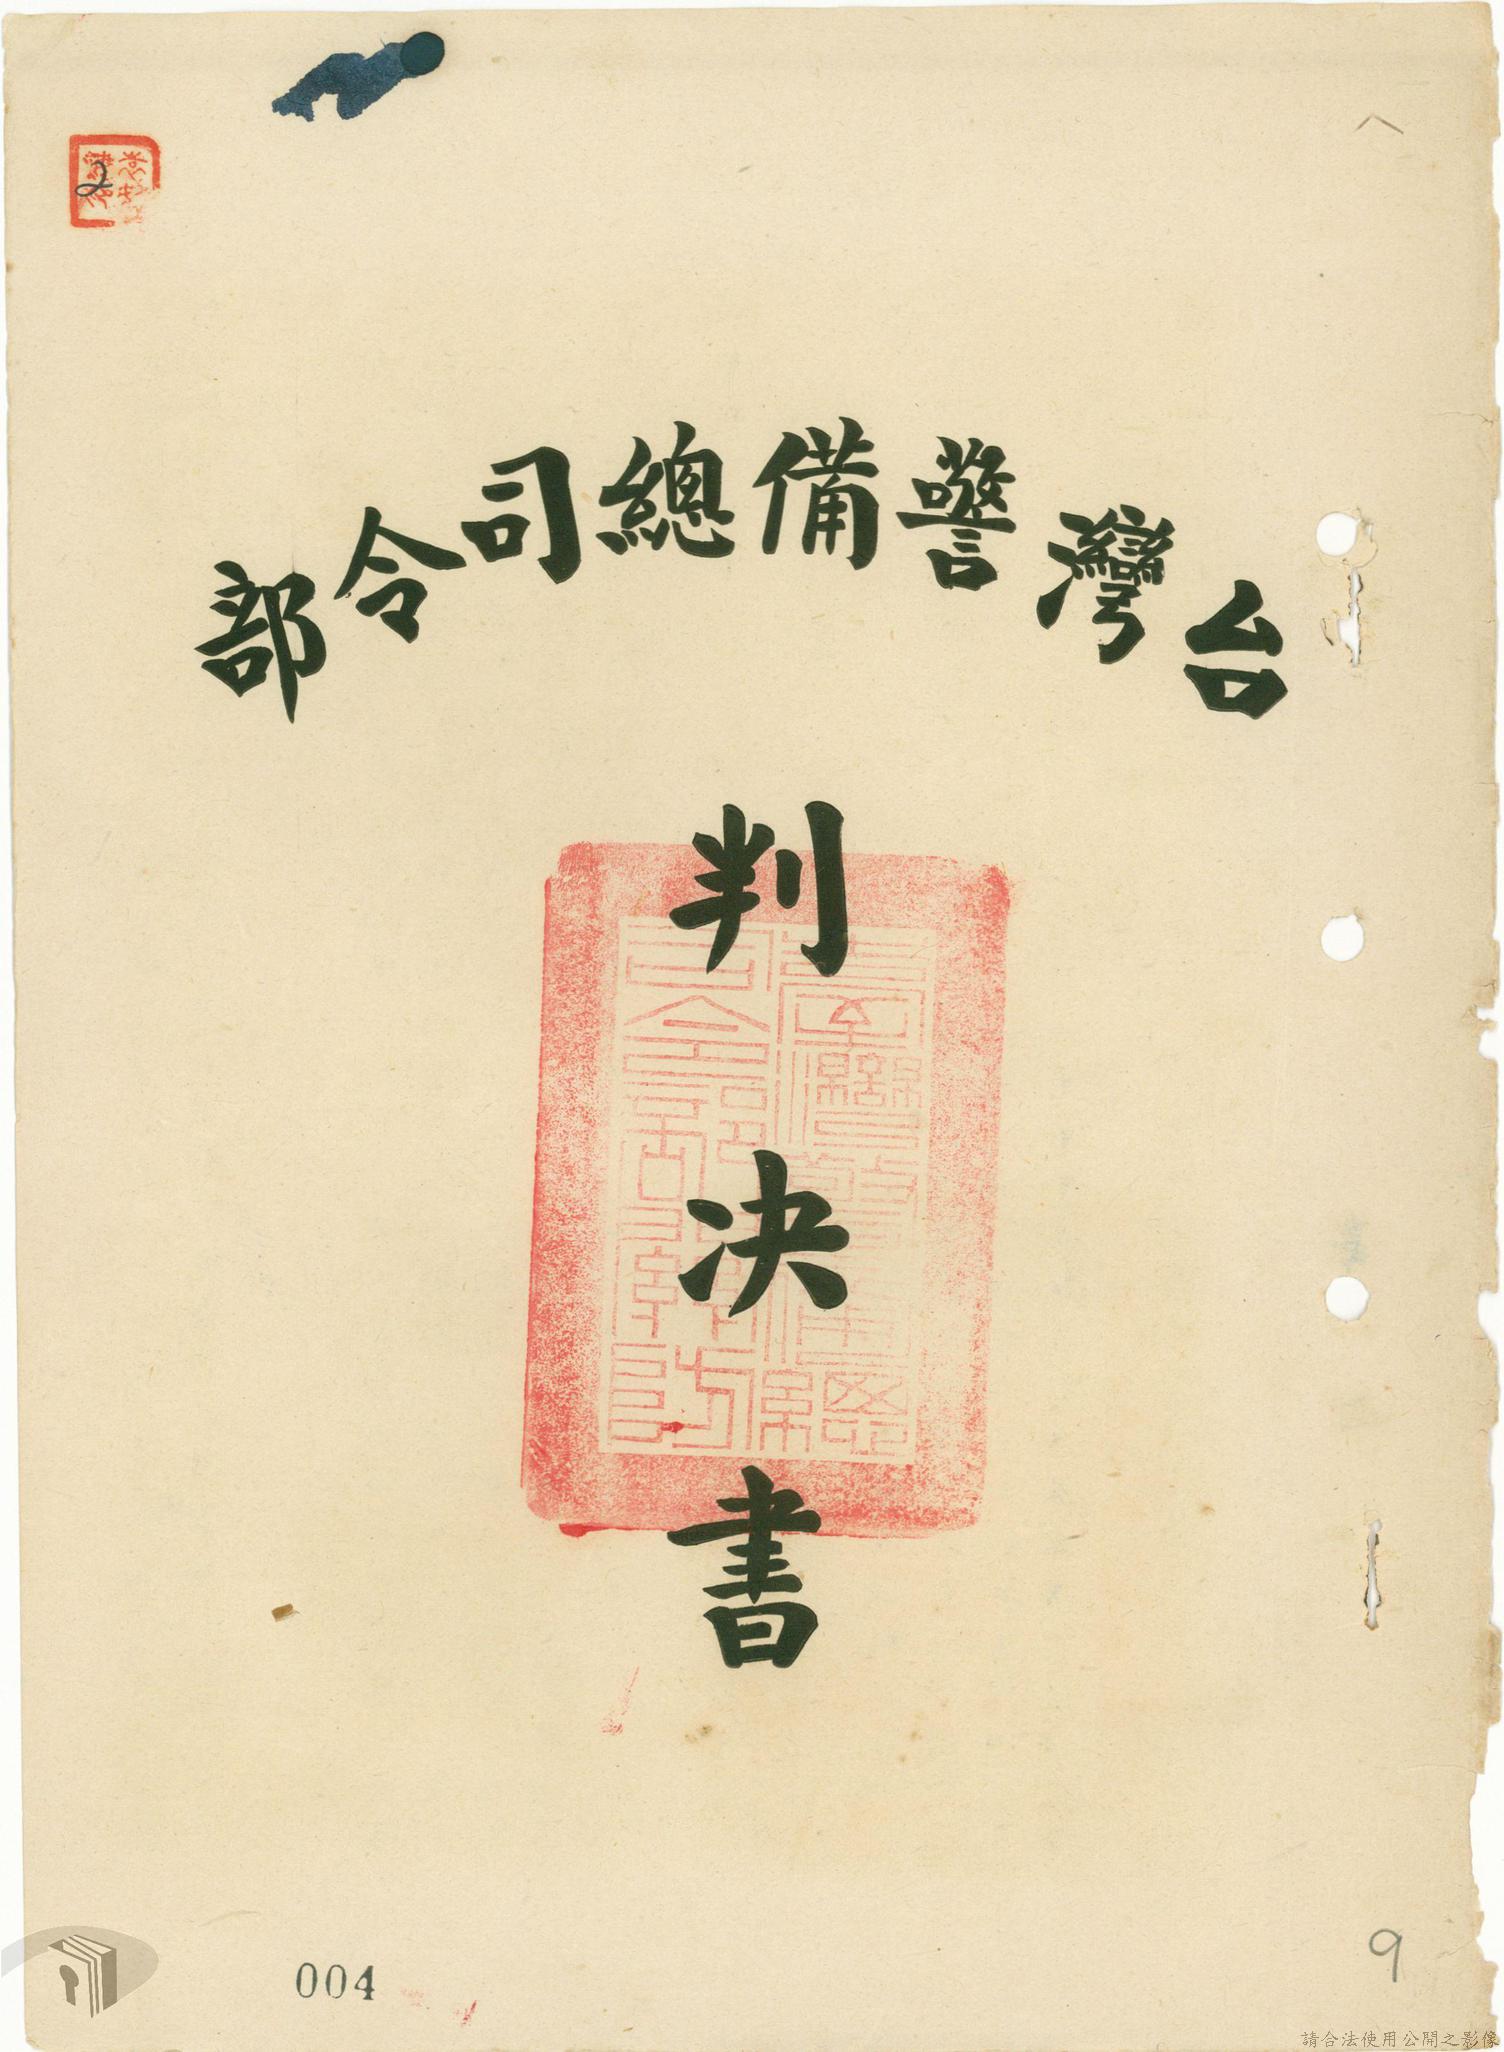 2
台灣警備總司令部
判
決
書
004
9
請合法使用公開之影像